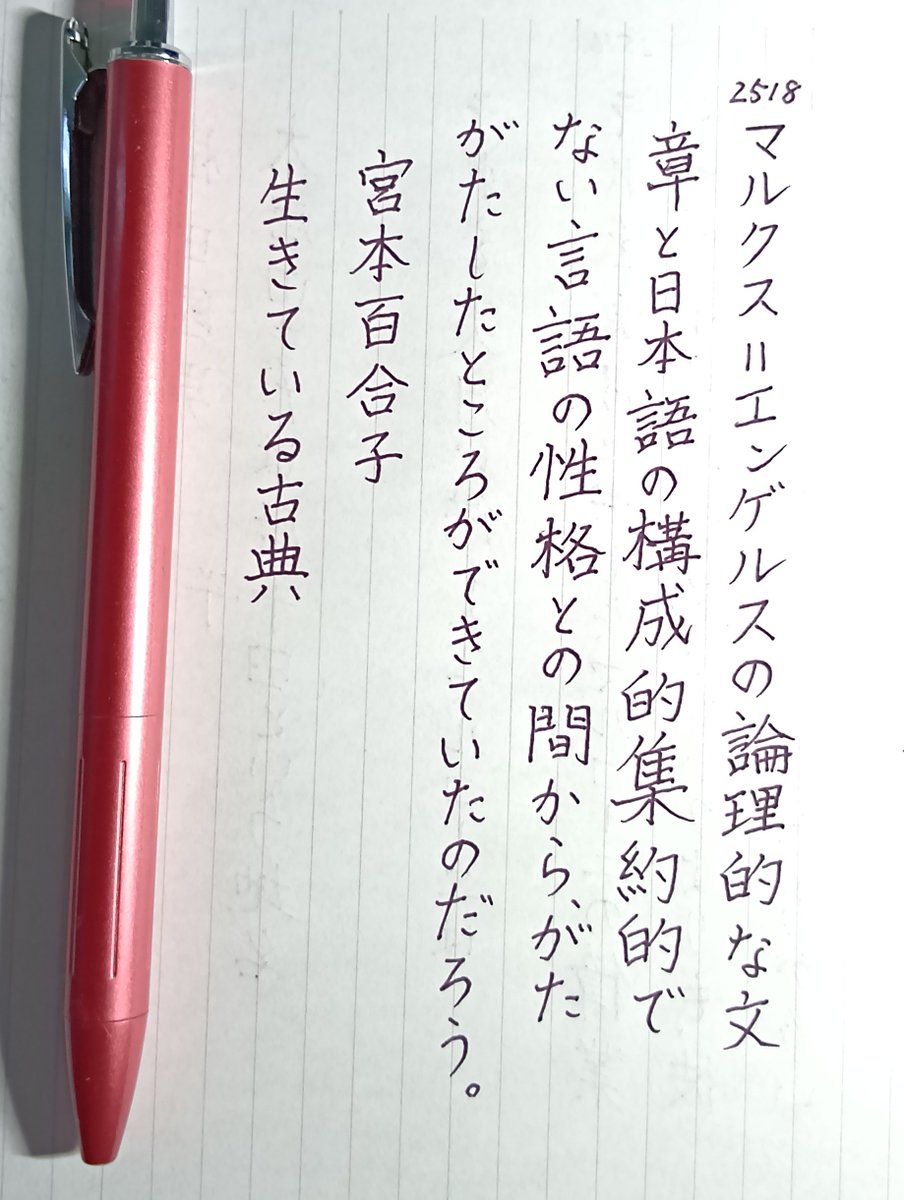 2518
マルクス＝エンゲルスの論理的な文
章と日本語の構成的集約的で
ない言語の性格との間から、がた
がたしたところができていたのだろう。
宮本百合子
生きている古典